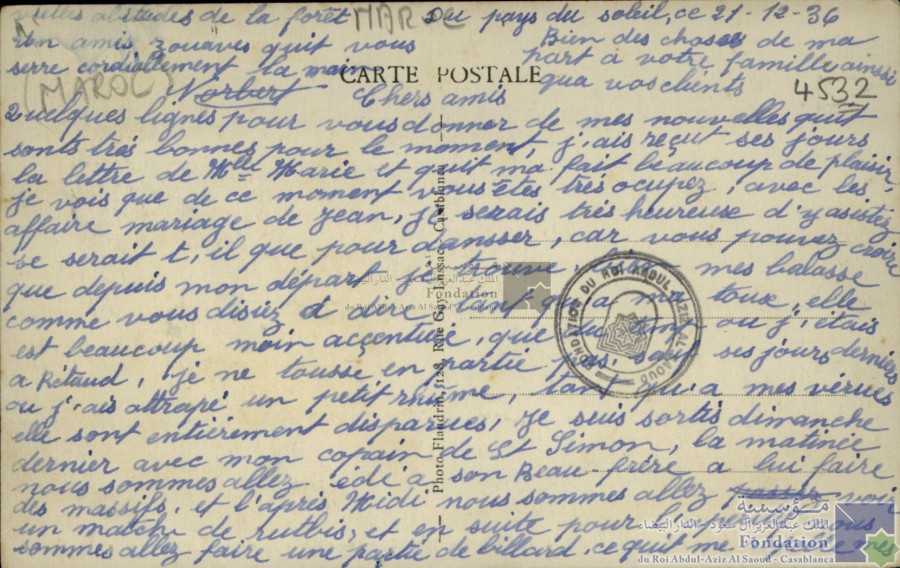 MAROC
Du pays du soleil, ce 21-12-36
Bien des choses de ma
part à votre famille ainssi
qua vos clients
4532
vieilles abstudes de la forêt
Un amis zouaves quit vous
serre cordiallement la main
Norbert
(MAROC)
CARTE POSTALE
Chers amis
Quelques lignes pour vous donner de mes nouvelles quit
sonts très bonnes pour le moment, j'ais reçut ses jours
la lettre de Mlle Marie et quit ma fait beaucoup de plaisir,
je vois que de ce moment vous êtes très ocupez, avec les
affaire mariage de Jean, je serais très heureuse d'y asistez
se serait t'il que pour dansser, car vous pouvez croire
que depuis mon départ je trouve mes balasse
comme vous disiez tant qu'a ma toux, elle
est beaucoup moin acçentuée, que du temp ou j'étais
a Rétaud, je ne tousse en partie pas, sauf ses jours derniers
ou j'ais attrapé un petit rhûme, tant qu'a mes vérues
elle sont entièrement disparues, Je suis sortis dimanche
dernier avec mon copain de St Simon, la matinée
nous sommes allez édé a son Beau-frère a lui faire
des massifs, et l'après Midi nous sommes allez voir
un match de rutbis, et en suite pour nous
sommes allez faire une partie de billard, ce quit me mes
Photo Flandrin, 128, Rue Gay-Lussac, Casablanca
FONDATION DU ROI ABDUL AZIZ AL SAOUD
Fondation
du Roi Abdul-Aziz Al Saoud - Casablanca
مؤسسة
الملك عبد العزيز آل سعود - الدار البيضاء
Fondation
du Roi Abdul-Aziz Al Saoud - Casablanca